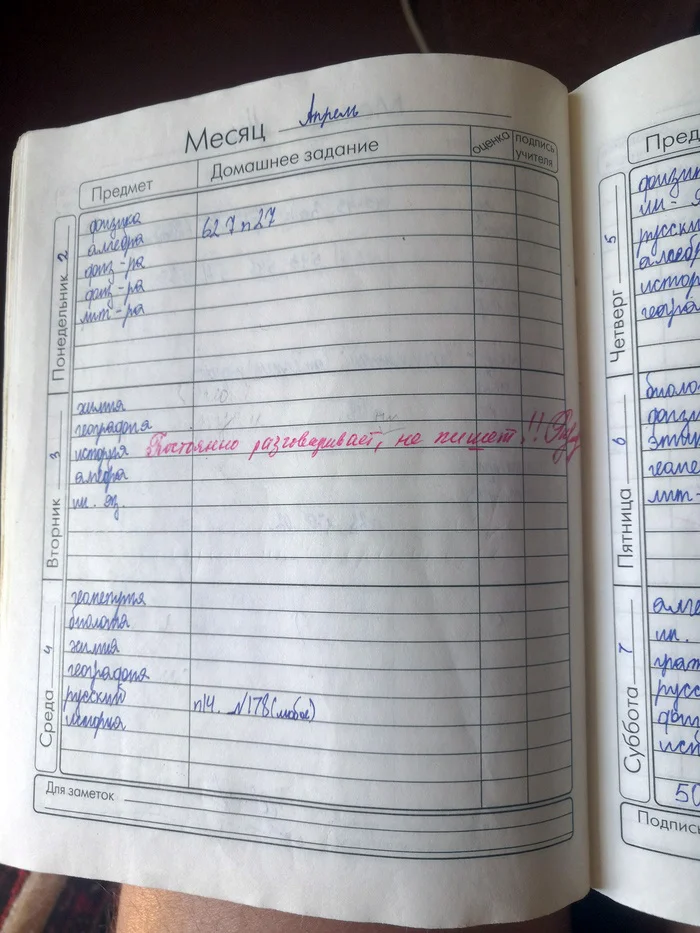 Месяц Апрель
Предмет Домашнее задание оценка подпись учителя
Понедельник 2
физика
алгебра 627 п27
физ-ра
физ-ра
лит-ра
Вторник 3
химия
география
история Постоянно разговаривает, не пишет!!
алгебра
ин. яз.
Среда 4
геометрия
биология
химия
география
русский п14. №178(любое)
история
Для заметок
Пред
Четверг 5
физик
русски
алгебр
истор
геогра
Пятница 6
биоло
физи
геоме
лит-
Суббота 7
алге
ин.
русс
ист
50
Подпись